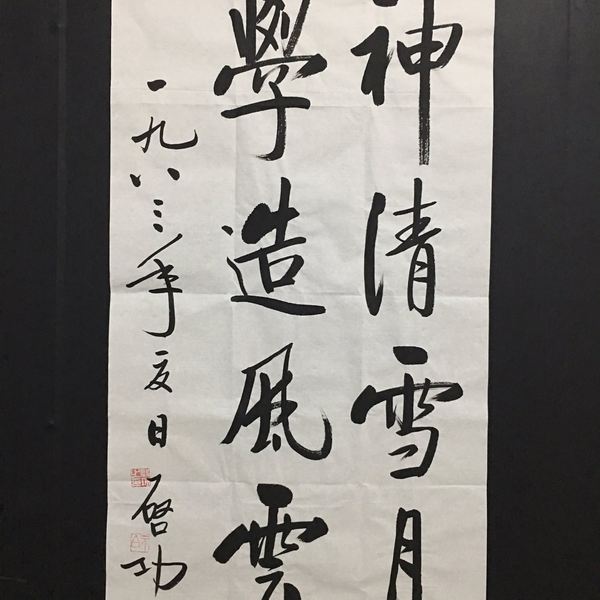 神清雪月
學造風雲
一九八三年夏日
啓功